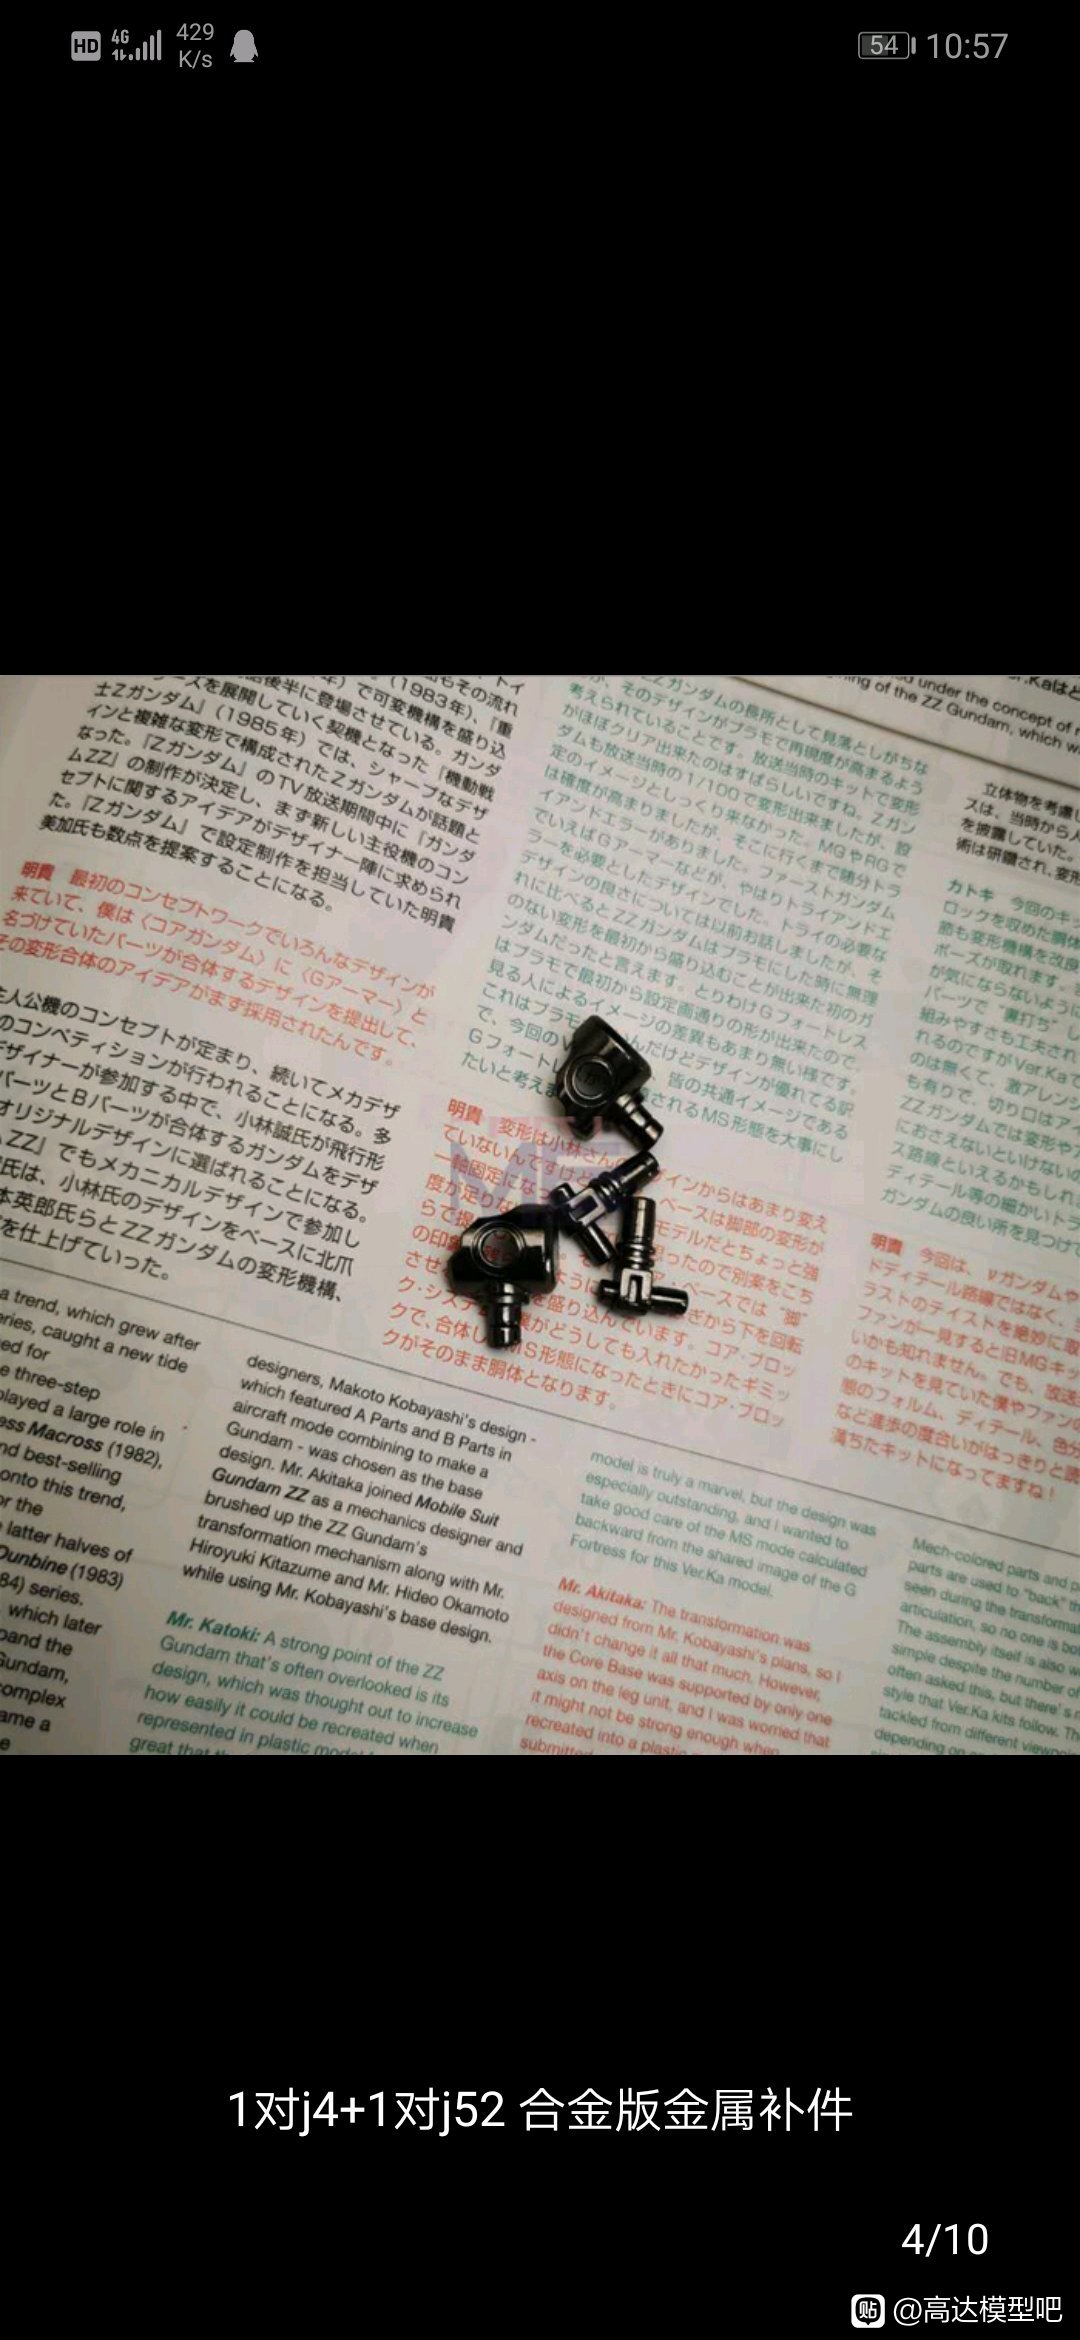 HD 4G 429 K/s 54 10:57
トイ
もその流れ
(1983年)、『重
年)で可変機構を盛り込
後半に登場させている。ガンダ
ズを展開していく契機となった『機動戦
士Ζガンダム』(1985年)では、シャープなデザ
インと複雑な変形で構成されたΖガンダムが話題と
なった。『Ζガンダム』のTV放送期間中に『ガンダ
ムΖΖ』の制作が決定し、まず新しい主役機のコン
セプトに関するアイデアがデザイナー陣に求められ
た。『Ζガンダム』で設定制作を担当していた明貴
美加氏も数点を提案することになる。
明貴 最初のコンセプトワークでいろんなデザインが
来ていて、僕は〈コアガンダム〉に〈Gアーマー〉と
名づけていたパーツが合体するデザインを提出して、
その変形合体のアイデアがまず採用されたんです。
主人公機のコンセプトが定まり、続いてメカデザ
のコンペティションが行われることになる。多
デザイナーが参加する中で、小林誠氏が飛行形
パーツとBパーツが合体するガンダムをデザ
オリジナルデザインに選ばれることになる。
ΖΖ』でもメカニカルデザインで参加し
氏は、小林氏のデザインをベースに北爪
本英郎氏らとΖΖガンダムの変形機構、
を仕上げていった。
ΖΖガンダムの長所として見落としがちな
が、そのデザインがプラモで再現度が高まるよう
考えられていることです。放送当時のキットで変形
がほぼクリア出来たのはすばらしいですね。Ζガン
ダムも放送当時の1/100で変形出来ましたが、設
定のイメージとしっくり来なかった。MGやRGで
は確度が高まりましたが、そこに行くまで随分トラ
イアンドエラーがありました。ファーストガンダム
でいえばGアーマーなどが、やはりトライアンドエ
ラーを必要としたデザインでした。トライの必要な
デザインの良さについては以前お話しましたが、そ
れに比べるとΖΖガンダムはプラモにした時に無理
のない変形を最初から盛り込むことが出来た初のガ
ンダムだったと言えます。とりわけGフォートレス
はプラモで最初から設定画通りの形が出来たので、
見る人によるイメージの差異もあまり無い様です。
これはプラモ んだけどデザインが優れてる訳
で、今回のV 皆の共通イメージである
Gフォートレ されるMS形態を大事にし
たいと考えま
明貴 変形は小林さんの ザインからはあまり変え
ていないんですけど ベースは脚部の変形が
一軸固定になっ モデルだとちょっと強
度が足りな 思ったので別案をこち
らで提 ア・ベースでは“脚”
の印象 ぎから下を回転
させ ように を盛り込んでいます。コア・ブロッ
ク・システ 僕がどうしても入れたかったギミッ
クで、合体し MS形態になったときにコア・ブロッ
クがそのまま胴体となります。
.Kaはと
d under the concept of
ing of the ZZ Gundam, which w
立体物を考慮し
スは、当時から人
を披露していた。
術は研鑽され、変形
カトキ 今回のキッ
ロックを収めた胴体
節も変形機構を改良
ポーズが取れます。
が気にならないように
パーツで“裏打ち”し
組みやすさも工夫され
れるのですがVer.Kaで
のは無くて、激アレンジ
も有りで、切り口はアイ
ΖΖガンダムでは変形や
におさえないといけないの
ス路線といえるかもしれま
ディテール等の細かいトラ
ガンダムの良い所を見つけて
明貴 今回は、νガンダムや
ドディテール路線ではなく、
ラストのテイストを絶妙に取
ファンが一見すると旧MGキッ
いかも知れません。でも、放送
のキットを見ていた僕やファンの
態のフォルム、ディテール、色分
など進歩の度合いがはっきりと読
満ちたキットになってますね！
a trend, which grew after
eries, caught a new tide
ed for
e three-step
played a large role in
ess Macross (1982),
nd best-selling
onto this trend,
or the
latter halves of
Dunbine (1983)
84) series.
which later
pand the
Gundam,
complex
ame a
e
designers, Makoto Kobayashi's design -
which featured A Parts and B Parts in
aircraft mode combining to make a
Gundam - was chosen as the base
design. Mr. Akitaka joined Mobile Suit
Gundam ZZ as a mechanics designer and
brushed up the ZZ Gundam's
transformation mechanism along with Mr.
Hiroyuki Kitazume and Mr. Hideo Okamoto
while using Mr. Kobayashi's base design.
Mr. Katoki: A strong point of the ZZ
Gundam that's often overlooked is its
design, which was thought out to increase
how easily it could be recreated when
represented in plastic model
great that
model is truly a marvel, but the design was
especially outstanding, and I wanted to
take good care of the MS mode calculated
backward from the shared image of the G
Fortress for this Ver.Ka model.
Mr. Akitaka: The transformation was
designed from Mr. Kobayashi's plans, so I
didn't change it all that much. However,
the Core Base was supported by only one
axis on the leg unit, and I was worried that
it might not be strong enough when
recreated into a plastic
submitted
Mech-colored parts and p
parts are used to "back" th
seen during the transforma
articulation, so no one is bo
The assembly itself is also w
simple despite the number of
often asked this, but there's n
style that Ver.Ka kits follow. Th
tackled from different viewpoi
depending on
1对j4+1对j52 合金版金属补件
4/10
贴 @高达模型吧